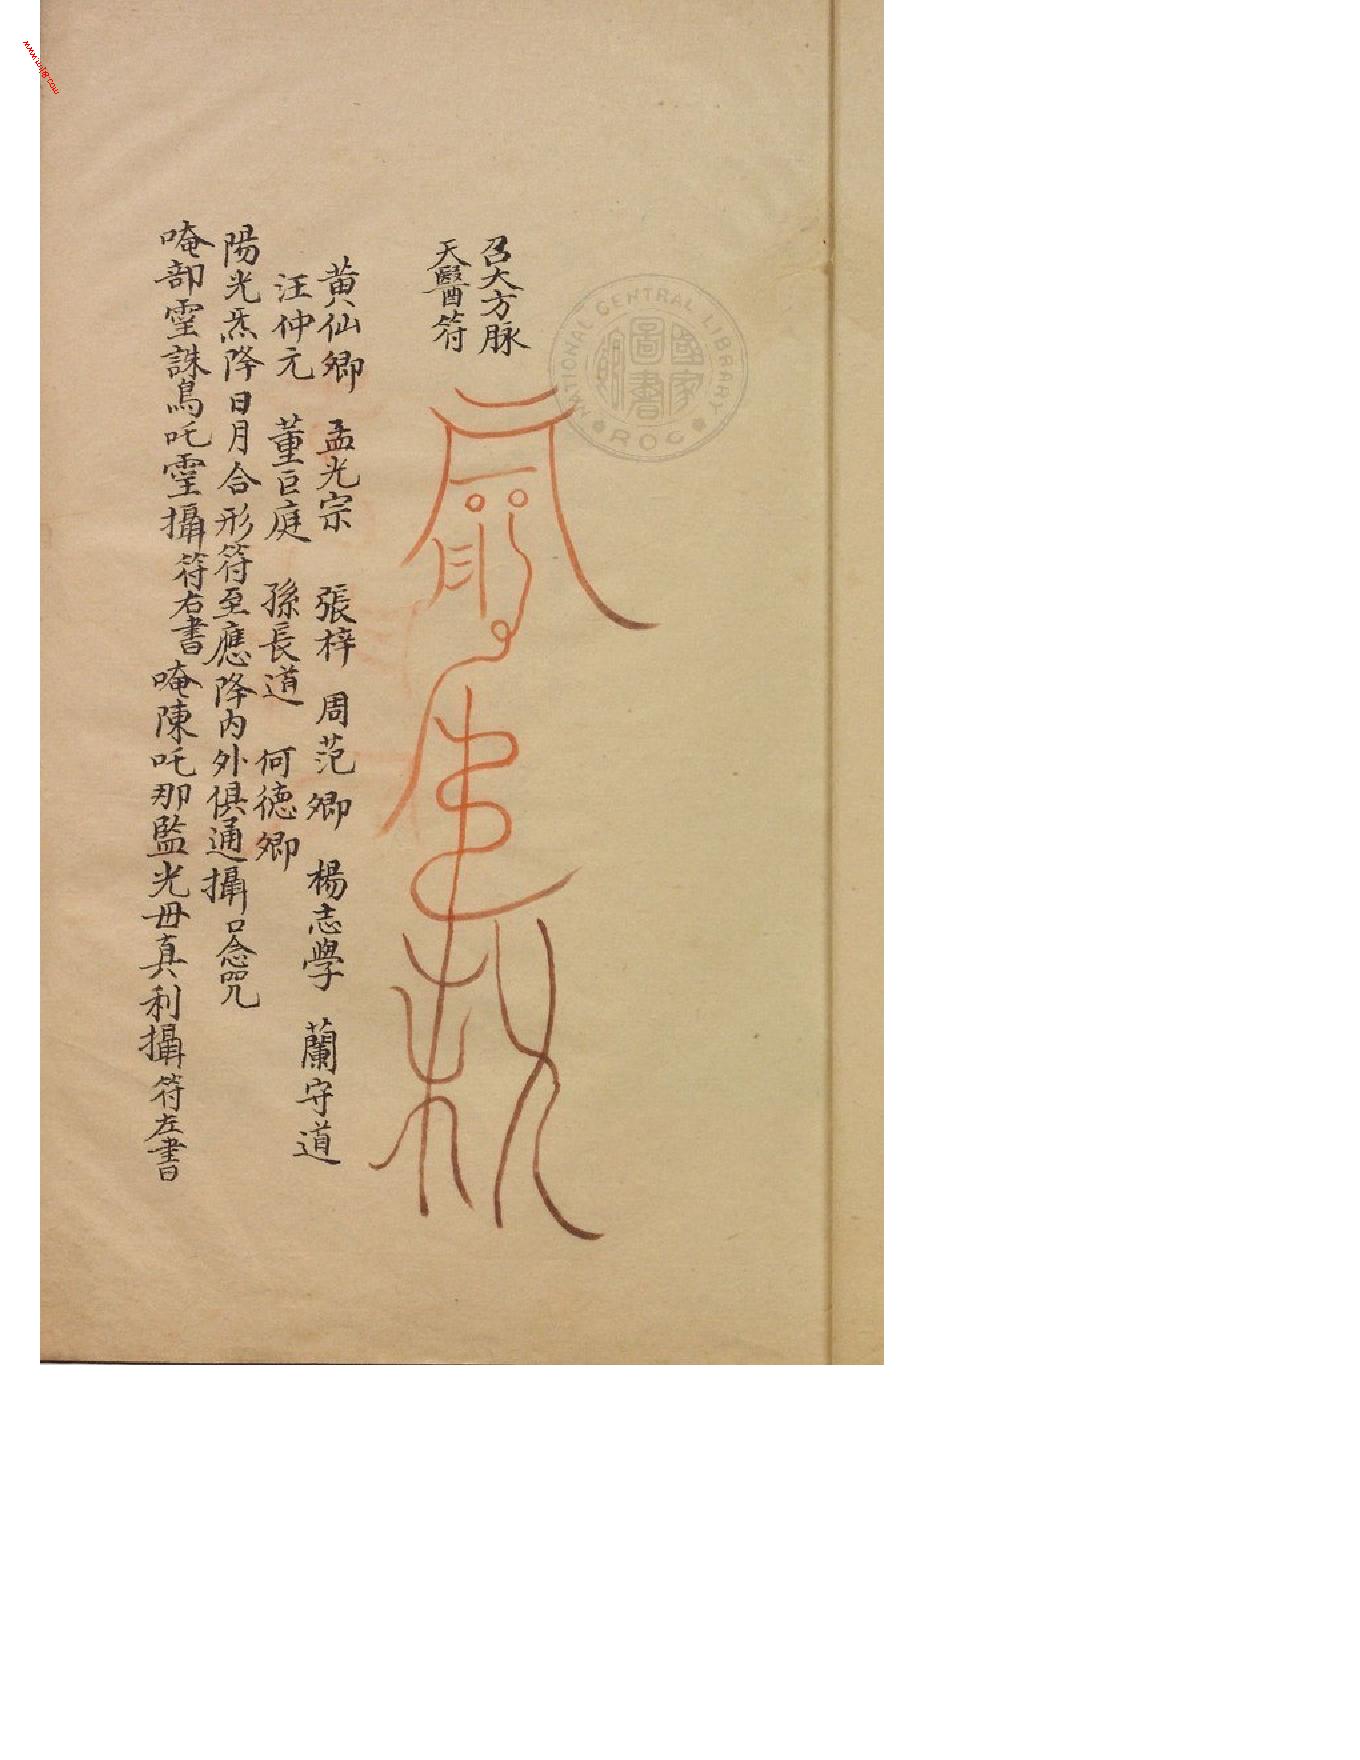 召大方脉
天醫符
黄仙卿 孟光宗 張梓 周范卿 楊志學 蘭守道
汪仲元 董巨庭 孫長道 何德卿
陽光炁降日月合形符至應降内外俱通攝口念咒
唵部霊誅鳥吒霊攝符右書 唵陳吒那監光毋真利攝符左書
NATIONAL CENTRAL LIBRARY ROC
國家圖書館